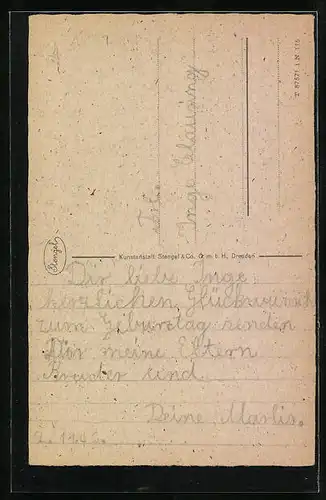 T 87571 I N 116
Inge Clausing
Stengel
Kunstanstalt Stengel & Co. G. m. b. H., Dresden
Dir liebe Inge
herzlichen Glückwunsch
zum Geburtstag senden
Dir meine Eltern
Bruder und
Deine Marlis.